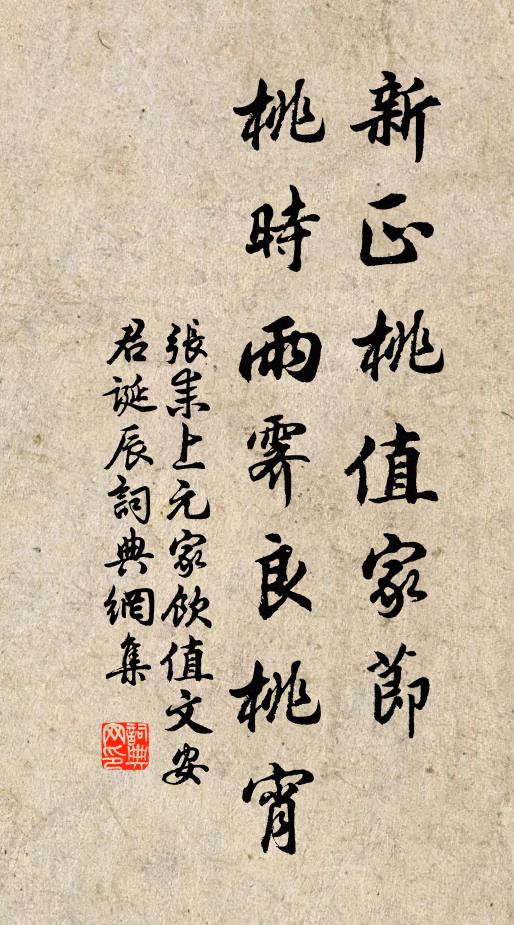 新正桃值家節
桃時雨霽良桃宵
張耒上元家飲值文安
君誕辰詞典網集
詞典
网印